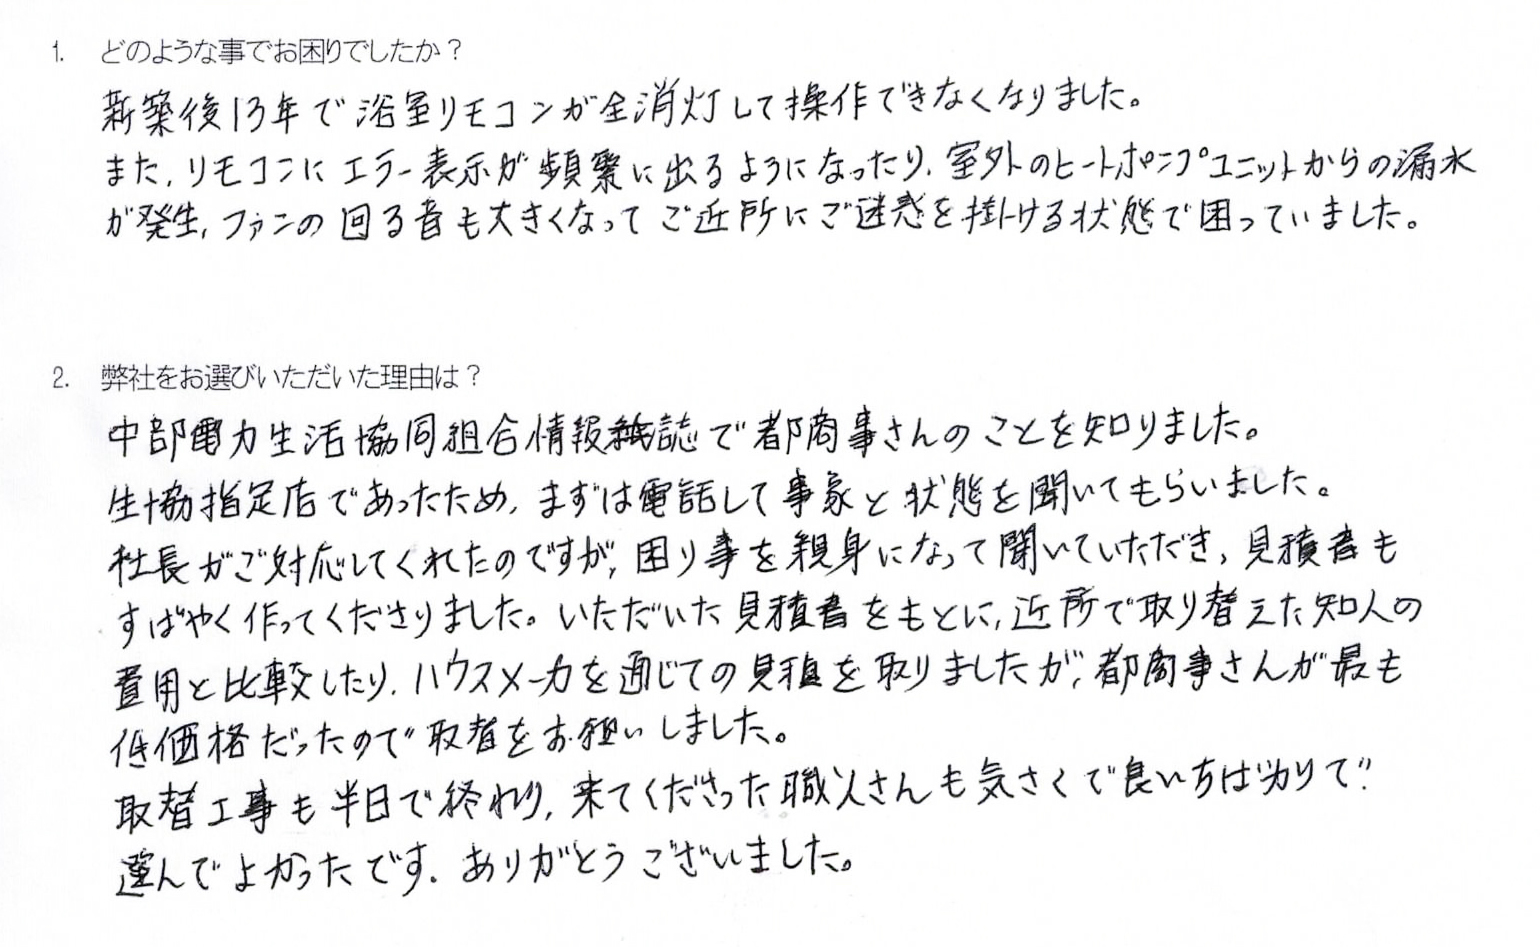 1. どのような事でお困りでしたか？
新築後13年で浴室リモコンが全消灯して操作できなくなりました。
また、リモコンにエラー表示が頻繁に出るようになったり、室外のヒートポンプユニットからの漏水
が発生、ファンの回る音も大きくなってご近所にご迷惑を掛ける状態で困っていました。
2. 弊社をお選びいただいた理由は？
中部電力生活協同組合情報誌で都商事さんのことを知りました。
生協指定店であったため、まずは電話して事象と状態を聞いてもらいました。
社長がご対応してくれたのですが、困り事を親身になって聞いていただき、見積書も
すばやく作ってくださりました。いただいた見積書をもとに、近所で取り替えた知人の
費用と比較したり、ハウスメーカを通じての見積を取りましたが、都商事さんが最も
低価格だったので取替をお願いしました。
取替工事も半日で終わり、来てくださった職人さんも気さくで良いちばかりで
選んでよかったです。ありがとうございました。